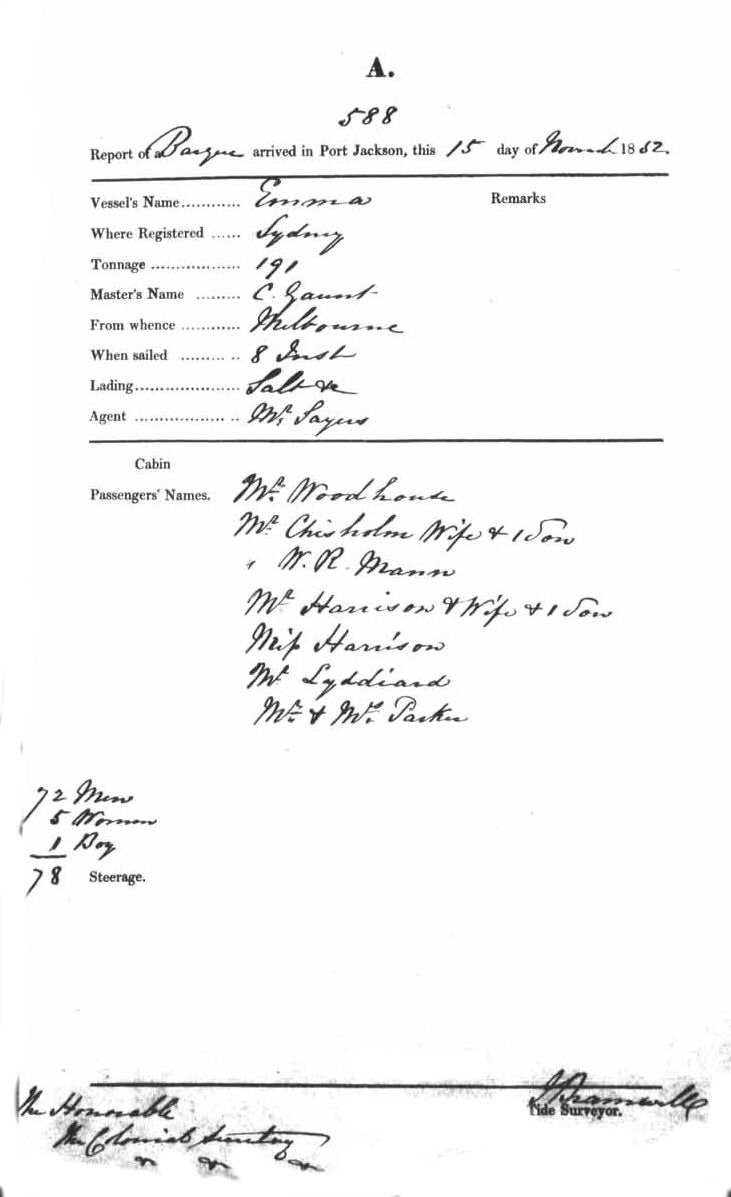 A.
588
Report of a Barque arrived in Port Jackson, this 15 day of Novemb 1852.
Vessel's Name............ Emma Remarks
Where Registered ...... Sydney
Tonnage .................. 191
Master's Name ......... C. Gaunt
From whence ............ Melbourne
When sailed ......... .. 8 Inst
Lading..................... Salt &c
Agent .................. .. Mr. Sayers
Cabin
Passengers' Names. Mr. Woodhouse
Mr. Chisholm Wife & 1 Son
" W. R. Mann
Mr Harrison & Wife & 1 Son
Miss Harrison
Mr Lyddiard
Mr. & Mrs. Parker
72 Men
5 Women
1 Boy
78 Steerage.
J Bramwell
Tide Surveyor.
The Honorable
The Colonial Secretary